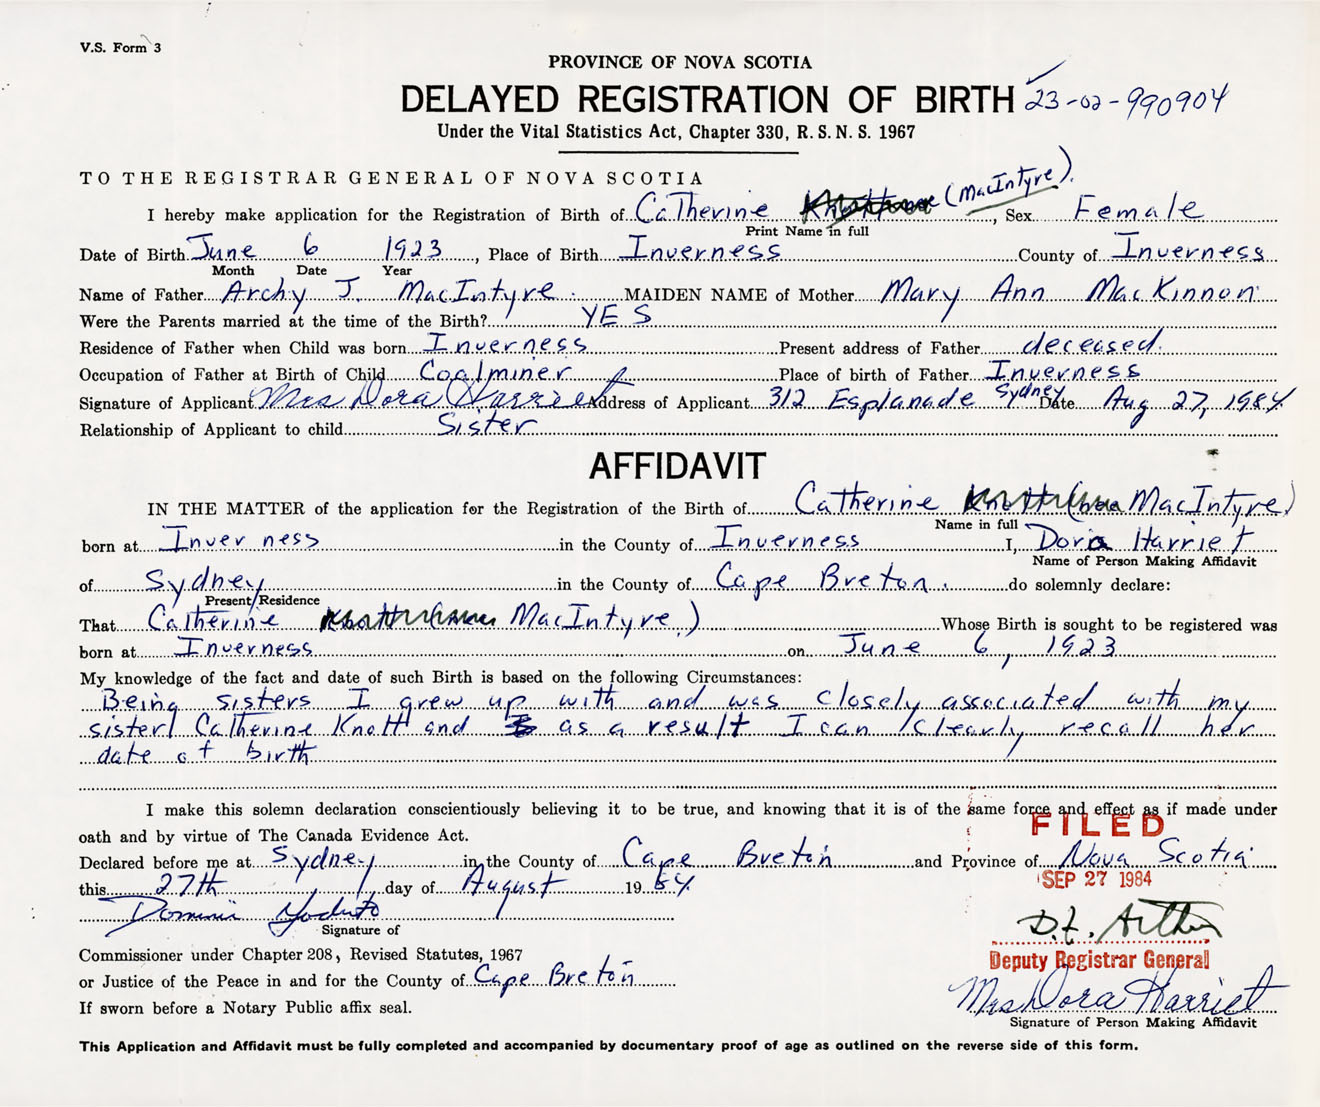 V.S. Form 3
PROVINCE OF NOVA SCOTIA
DELAYED REGISTRATION OF BIRTH 23-02-990904
Under the Vital Statistics Act, Chapter 330, R. S. N. S. 1967
TO THE REGISTRAR GENERAL OF NOVA SCOTIA
I hereby make application for the Registration of Birth of Catherine (MacIntyre), Sex Female
Print Name in full
Date of Birth June 6 1923, Place of Birth Inverness County of Inverness
Month Date Year
Name of Father Archy J. MacIntyre. MAIDEN NAME of Mother Mary Ann MacKinnon
Were the Parents married at the time of the Birth? YES
Residence of Father when Child was born Inverness Present address of Father deceased.
Occupation of Father at Birth of Child Coalminer Place of birth of Father Inverness
Signature of Applicant Mrs Dora Harriet Address of Applicant 312 Esplanade Sydney Date Aug 27, 1984
Relationship of Applicant to child Sister
AFFIDAVIT
IN THE MATTER of the application for the Registration of the Birth of Catherine Knott (nee MacIntyre)
Name in full
born at Inverness in the County of Inverness I, Dora Harriet
Name of Person Making Affidavit
of Sydney in the County of Cape Breton. do solemnly declare:
Present Residence
That Catherine Knott MacIntyre) Whose Birth is sought to be registered was
born at Inverness on June 6, 1923
My knowledge of the fact and date of such Birth is based on the following Circumstances:
Being sisters I grew up with and was closely associated with my
sister Catherine Knott and as a result I can clearly recall her
date of birth
I make this solemn declaration conscientiously believing it to be true, and knowing that it is of the same force and effect as if made under
oath and by virtue of The Canada Evidence Act.
FILED
Declared before me at Sydney in the County of Cape Breton and Province of Nova Scotia
this 27th day of August 1984
SEP 27 1984
Signature of
Commissioner under Chapter 208, Revised Statutes, 1967
Deputy Registrar General
or Justice of the Peace in and for the County of Cape Breton
Mrs Dora Harriet
If sworn before a Notary Public affix seal.
Signature of Person Making Affidavit
This Application and Affidavit must be fully completed and accompanied by documentary proof of age as outlined on the reverse side of this form.